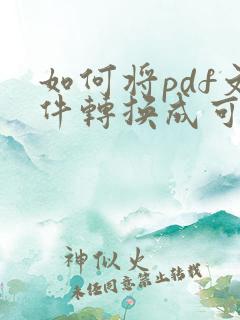 如何将pdf文
件轉換成可
神似火
未经同意禁止转载